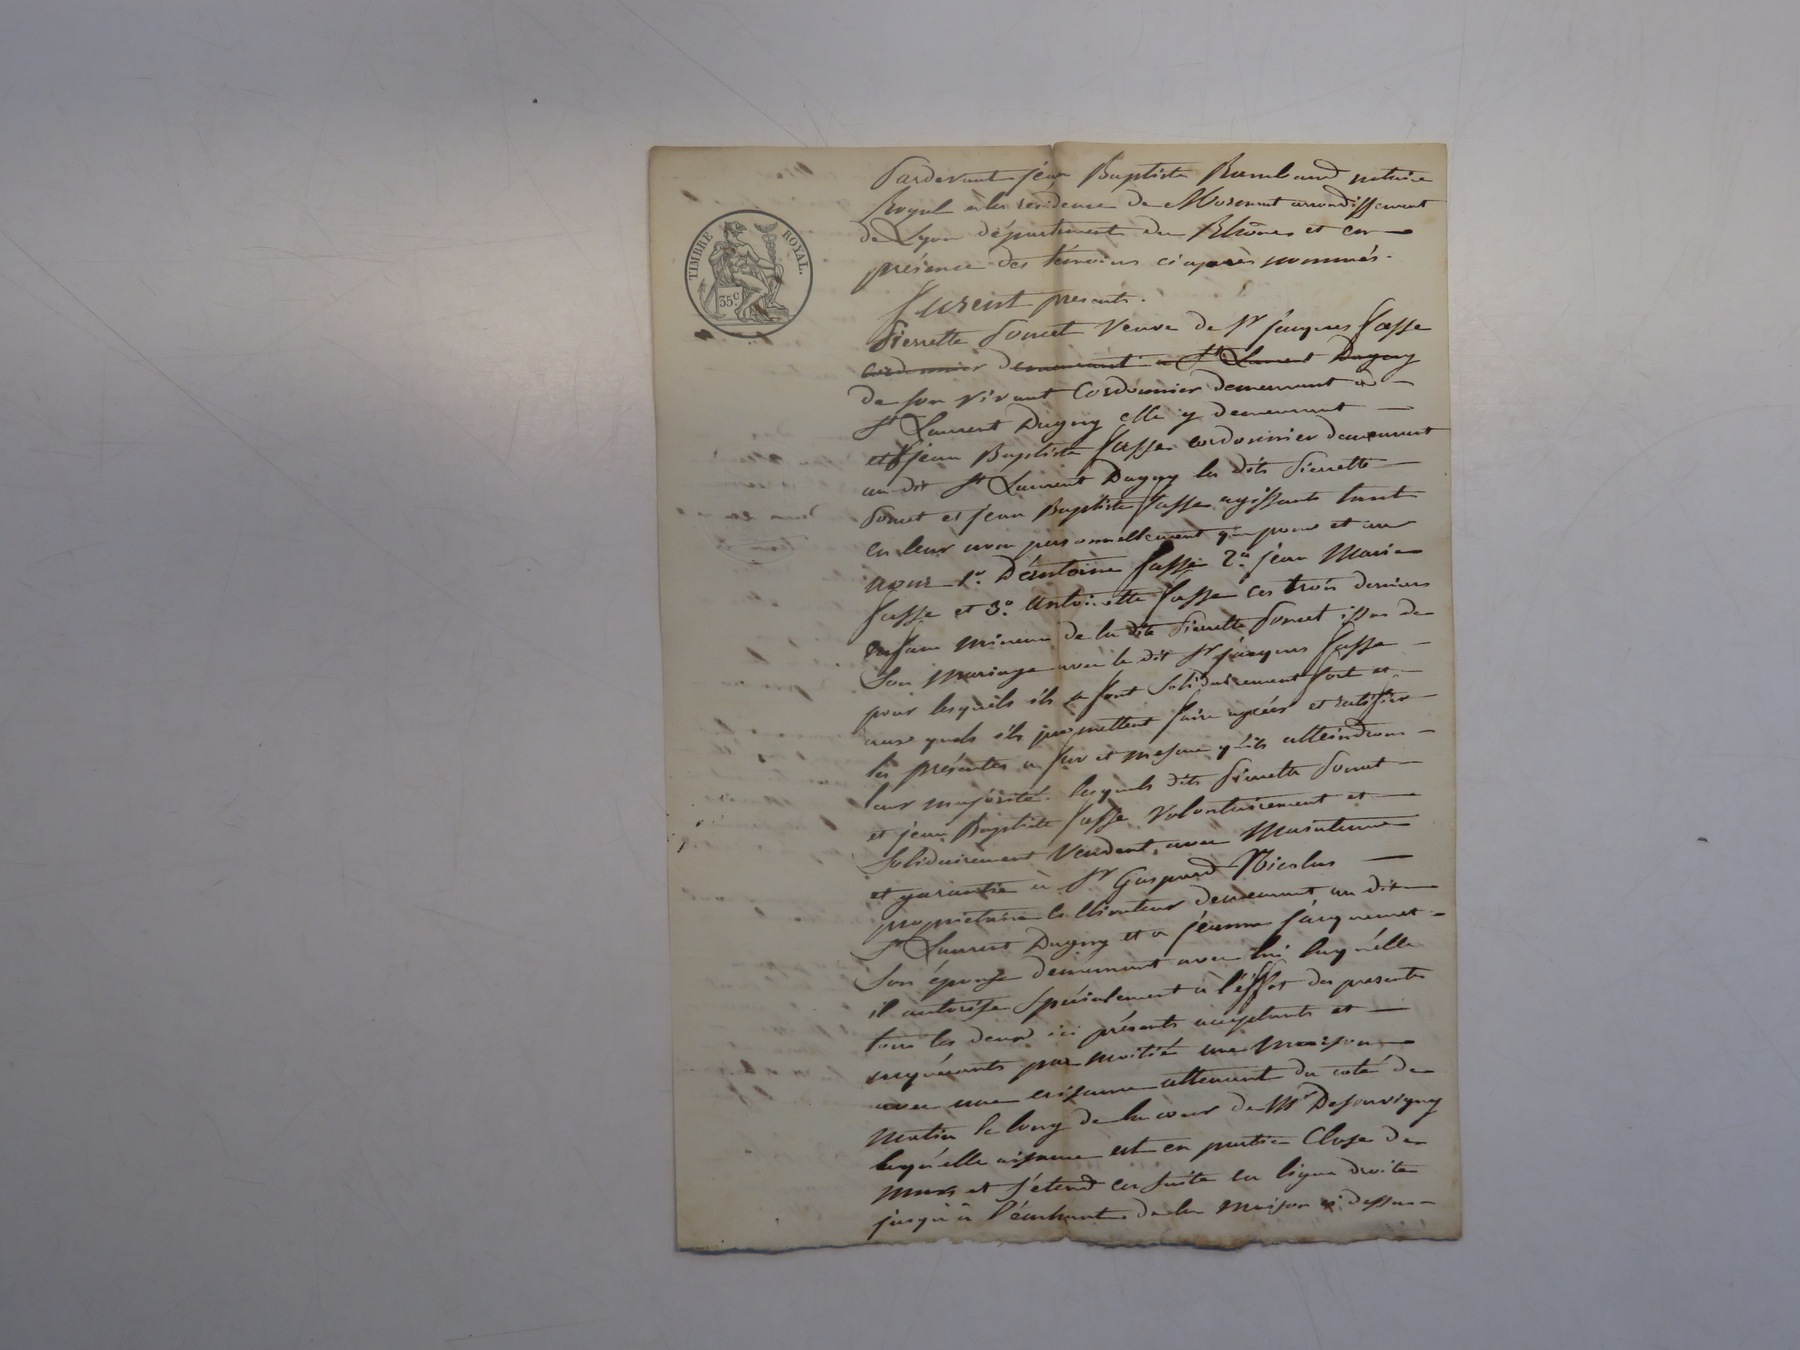 TIMBRE ROYAL.
35c
Pardevant jéan Baptiste Rambaud notaire
Royal à la résidence de Mornant arrondissement
de Lyon département du Rhône et en
présence des témoins ci après nommés.
furent présents.
Pierrette Poncet Veuve de Sr jacques fasse
cordonnier demeurant a St Laurent Dagny
de son vivant Cordonnier demeurant à
St Laurent Dagny elle y demeurant
et jean Baptiste fasse cordonnier demeurant
au dit St Laurent Dagny les dits Pierrette
Poncet et jean Baptiste fasse agissants tant
en leur nom personnellement que pour et au
nom 1o D'antoine fasse 2o jean Marie
fasse et 3o antoinette fasse ces trois derniers
enfans mineurs de la dite Pierrette Poncet issus de
Son Mariage avec le dit Sr jacques fasse
pour lesquels ils se font Solidairement fort et
aux quels ils promettent faire agréer et ratifier
les présentes a fur et mesure qu'ils atteindrons
leur majorité. lesquels dits Pierrette Poncet
et jean Baptiste fasse Volontairement et
Solidairement Vendent, avec Maintenue
et garantie à Sr Gaspard Nicolas
propriétaire Cultivateur demeurant au dit
St Laurent Dagny et a jeanne jacquemet
Son épouse demeurant avec lui laqu'elle
il autorise Spécialement à l'éffet des presentes
tous les deux ici présents acceptants et
acquérants par moitié une Maison
avec une aisance attenant du coté de
Matin le long de la cour de Mr Desouvigny
laqu'elle aisance est en partie Close de
Murs et S'étend en suite en ligne droite
jusqu'à de la Maison ci dessus